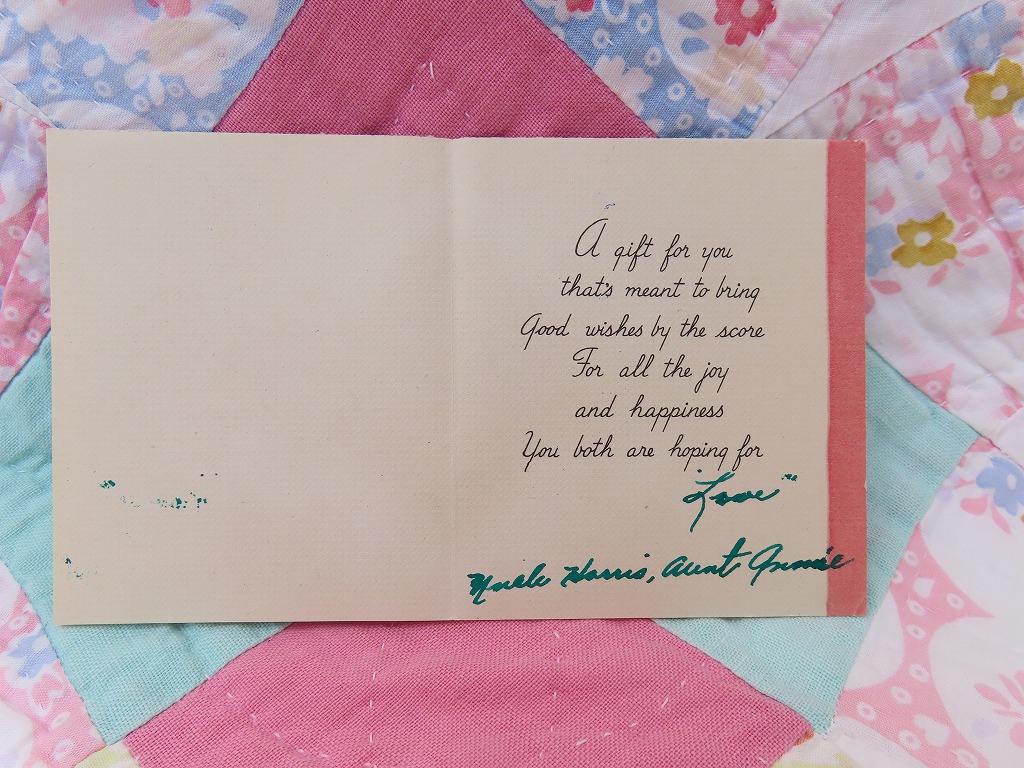 A gift for you
that's meant to bring
Good wishes by the score
For all the joy
and happiness
You both are hoping for
"Love"
Uncle Harris, Aunt Annie